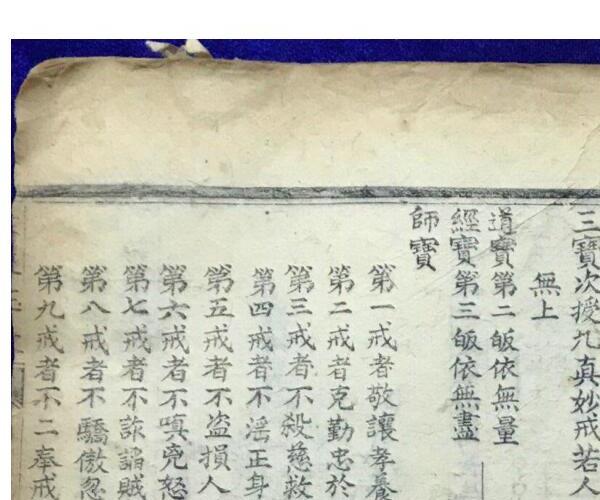 三寶次授九真妙戒若人
無上
道寶第二皈依無量
經寶第三皈依無盡
師寶
第一戒者敬讓孝養
第二戒者克勤忠於
第三戒者不殺慈救
第四戒者不淫正身
第五戒者不盜損人
第六戒者不嗔兇怒
第七戒者不詐諂賊
第八戒者不驕傲忽
第九戒者不二奉戒